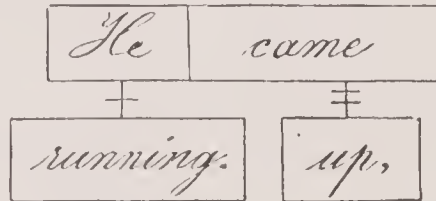 He came
running. up,